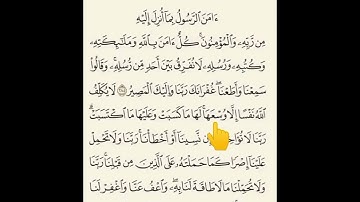 ءَامَنَ ٱلرَّسُولُ بِمَآ أُنزِلَ إِلَيْهِ
مِن رَّبِّهِۦ وَٱلْمُؤْمِنُونَ ۚ كُلٌّ ءَامَنَ بِٱللَّهِ وَمَلَٰٓئِكَتِهِۦ
وَكُتُبِهِۦ وَرُسُلِهِۦ لَا نُفَرِّقُ بَيْنَ أَحَدٍ مِّن رُّسُلِهِۦ ۚ وَقَالُوا۟
سَمِعْنَا وَأَطَعْنَا ۖ غُفْرَانَكَ رَبَّنَا وَإِلَيْكَ ٱلْمَصِيرُ ۝ لَا يُكَلِّفُ
ٱللَّهُ نَفْسًا إِلَّا وُسْعَهَا ۚ لَهَا مَا كَسَبَتْ وَعَلَيْهَا مَا ٱكْتَسَبَتْ ۗ
رَبَّنَا لَا تُؤَاخِذْنَآ إِن نَّسِينَآ أَوْ أَخْطَأْنَا ۚ رَبَّنَا وَلَا تَحْمِلْ
عَلَيْنَآ إِصْرًا كَمَا حَمَلْتَهُۥ عَلَى ٱلَّذِينَ مِن قَبْلِنَا ۚ رَبَّنَا
وَلَا تُحَمِّلْنَا مَا لَا طَاقَةَ لَنَا بِهِۦ ۖ وَٱعْفُ عَنَّا وَٱغْفِرْ لَنَا